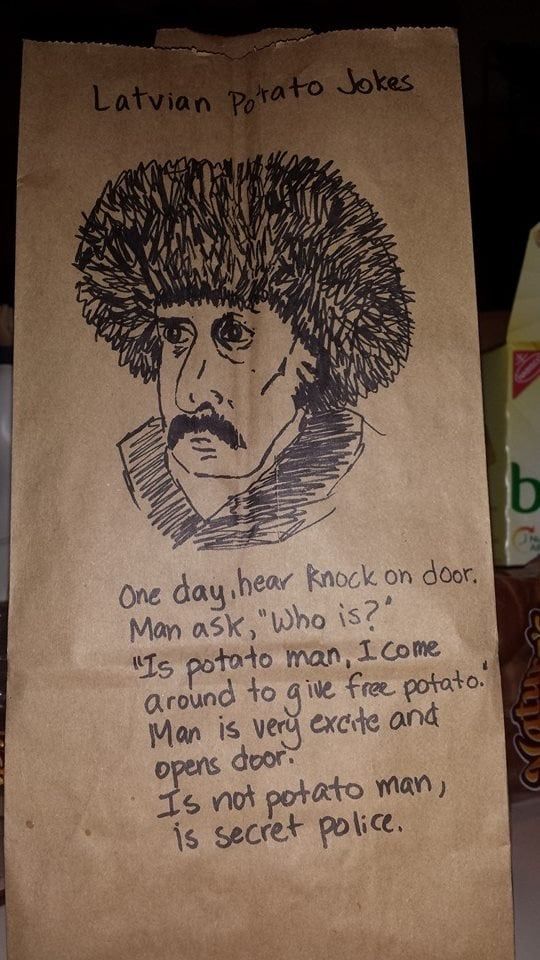 Latvian Potato Jokes
One day, hear knock on door.
Man ask, "Who is?"
"Is potato man, I come
around to give free potato."
Man is very excite and
opens door.
Is not potato man,
is secret police.
b